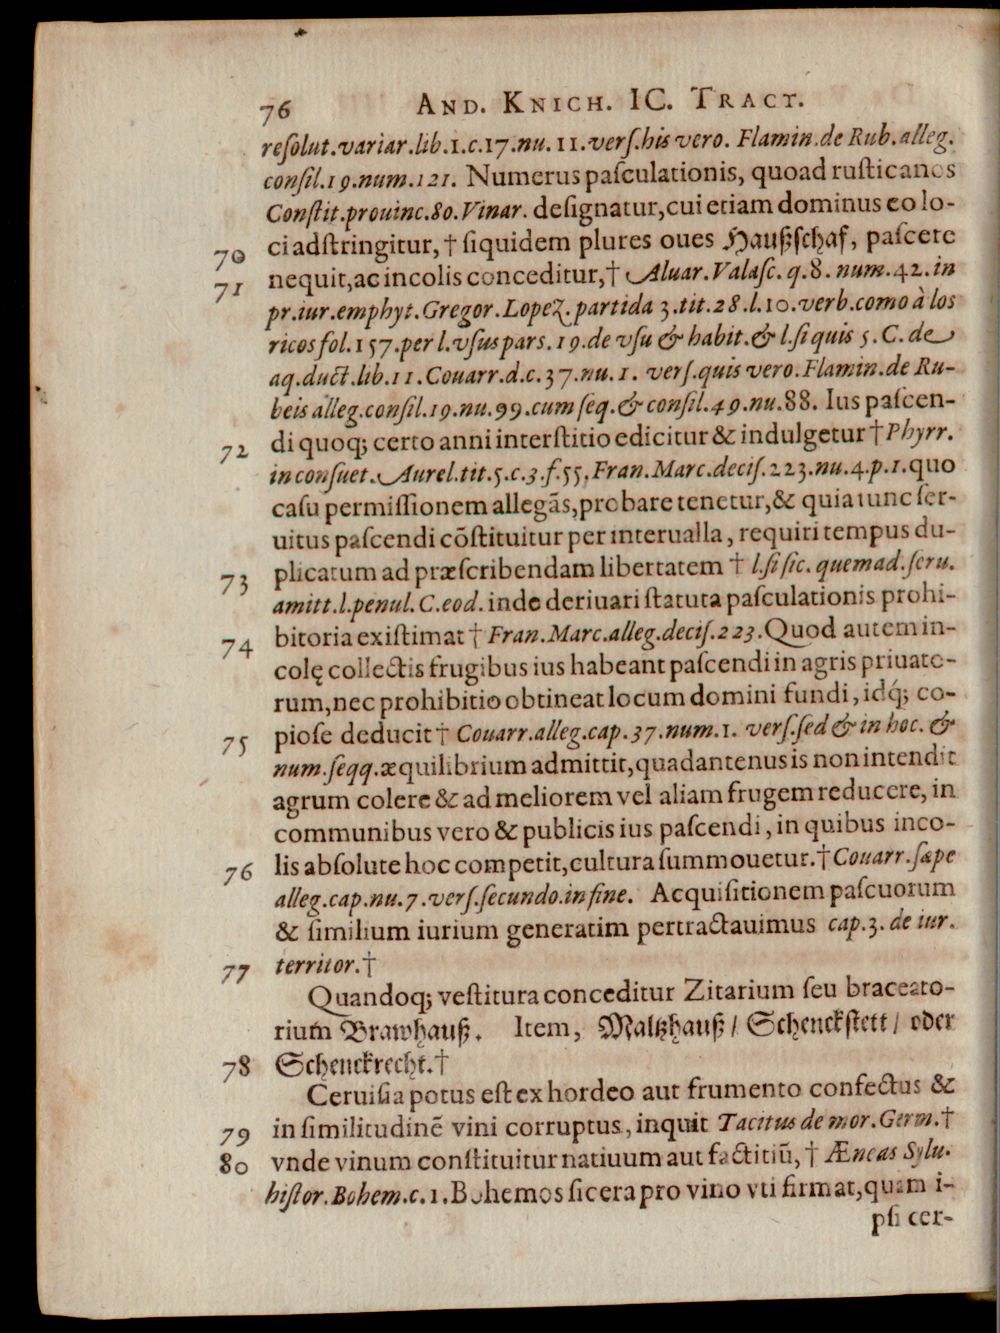 76 AND. KNICH. IC. TRACT.
reſolut.variar.lib.1.c.17.nu.11.verſ.his vero. Flamin.de Rub.alleg.
conſil.19.num.121. Numerus paſculationis, quoad ruſticanos
Conſtit.prouinc.80.Vinar. deſignatur,cui etiam dominus eo lo-
70 ci adſtringitur,† ſiquidem plures oues Haußſchaf, paſcere
71 nequit,ac incolis conceditur,† Aluar.Valaſc.q.8.num.42.in
pr.iur.emphyt.Gregor.Lopez.partida 3.tit.28.l.10.verb.como à los
ricos fol.157.per l.vſus pars.19.de vſu & habit.& l.ſi quis 5.C.de
aq.duct.lib.11.Couarr.d.c.37.nu.1. verſ.quis vero.Flamin.de Ru-
beis alleg.conſil.19.nu.99.cum ſeq.& conſil.49.nu.88. Ius paſcen-
72 di quoq; certo anni interſtitio edicitur & indulgetur † Phyrr.
in conſuet. Aurel.tit.5.c.3.f.55.Fran.Marc.deciſ.223.nu.4.p.1.quo
caſu permiſſionem allegãs,probare tenetur,& quia tunc ſer-
uitus paſcendi cõſtituitur per interualla, requiri tempus du-
73 plicatum ad præſcribendam libertatem † l.ſi ſic.quemad.ſeru.
amitt.l.penul.C.eod. inde deriuari ſtatuta paſculationis prohi-
74 bitoria exiſtimat † Fran.Marc.alleg.deciſ.223.Quod autem in-
colę collectis frugibus ius habeant paſcendi in agris priuato-
rum,nec prohibitio obtineat locum domini fundi, idq́; co-
75 pioſe deducit † Couarr.alleg.cap.37.num.1. verſ.ſed & in hoc. &
num.ſeqq.æquilibrium admittit,quadantenus is non intendit
agrum colere & ad meliorem vel aliam frugem reducere, in
communibus vero & publicis ius paſcendi, in quibus inco-
76 lis abſolute hoc competit,cultura ſummouetur.† Couarr.ſæpe
alleg.cap.nu.7.verſ.ſecundo.in fine. Acquiſitionem paſcuorum
& ſimilium iurium generatim pertractauimus cap.3. de iur.
77 territor.†
Quandoq; veſtitura conceditur Zitarium ſeu braceato-
rium Brawhauß. Item, Maltzhauß / Schenckſtett / oder
78 Schenckrecht.†
Ceruiſia potus eſt ex hordeo aut frumento confectus &
79 in ſimilitudinẽ vini corruptus, inquit Tacitus de mor.Germ.†
80 vnde vinum conſtituitur natiuum aut factitiũ, † Æneas Sylu.
hiſtor.Bohem.c.1.Bohemos ſicera pro vino vti firmat,quam i-
pſi cer-